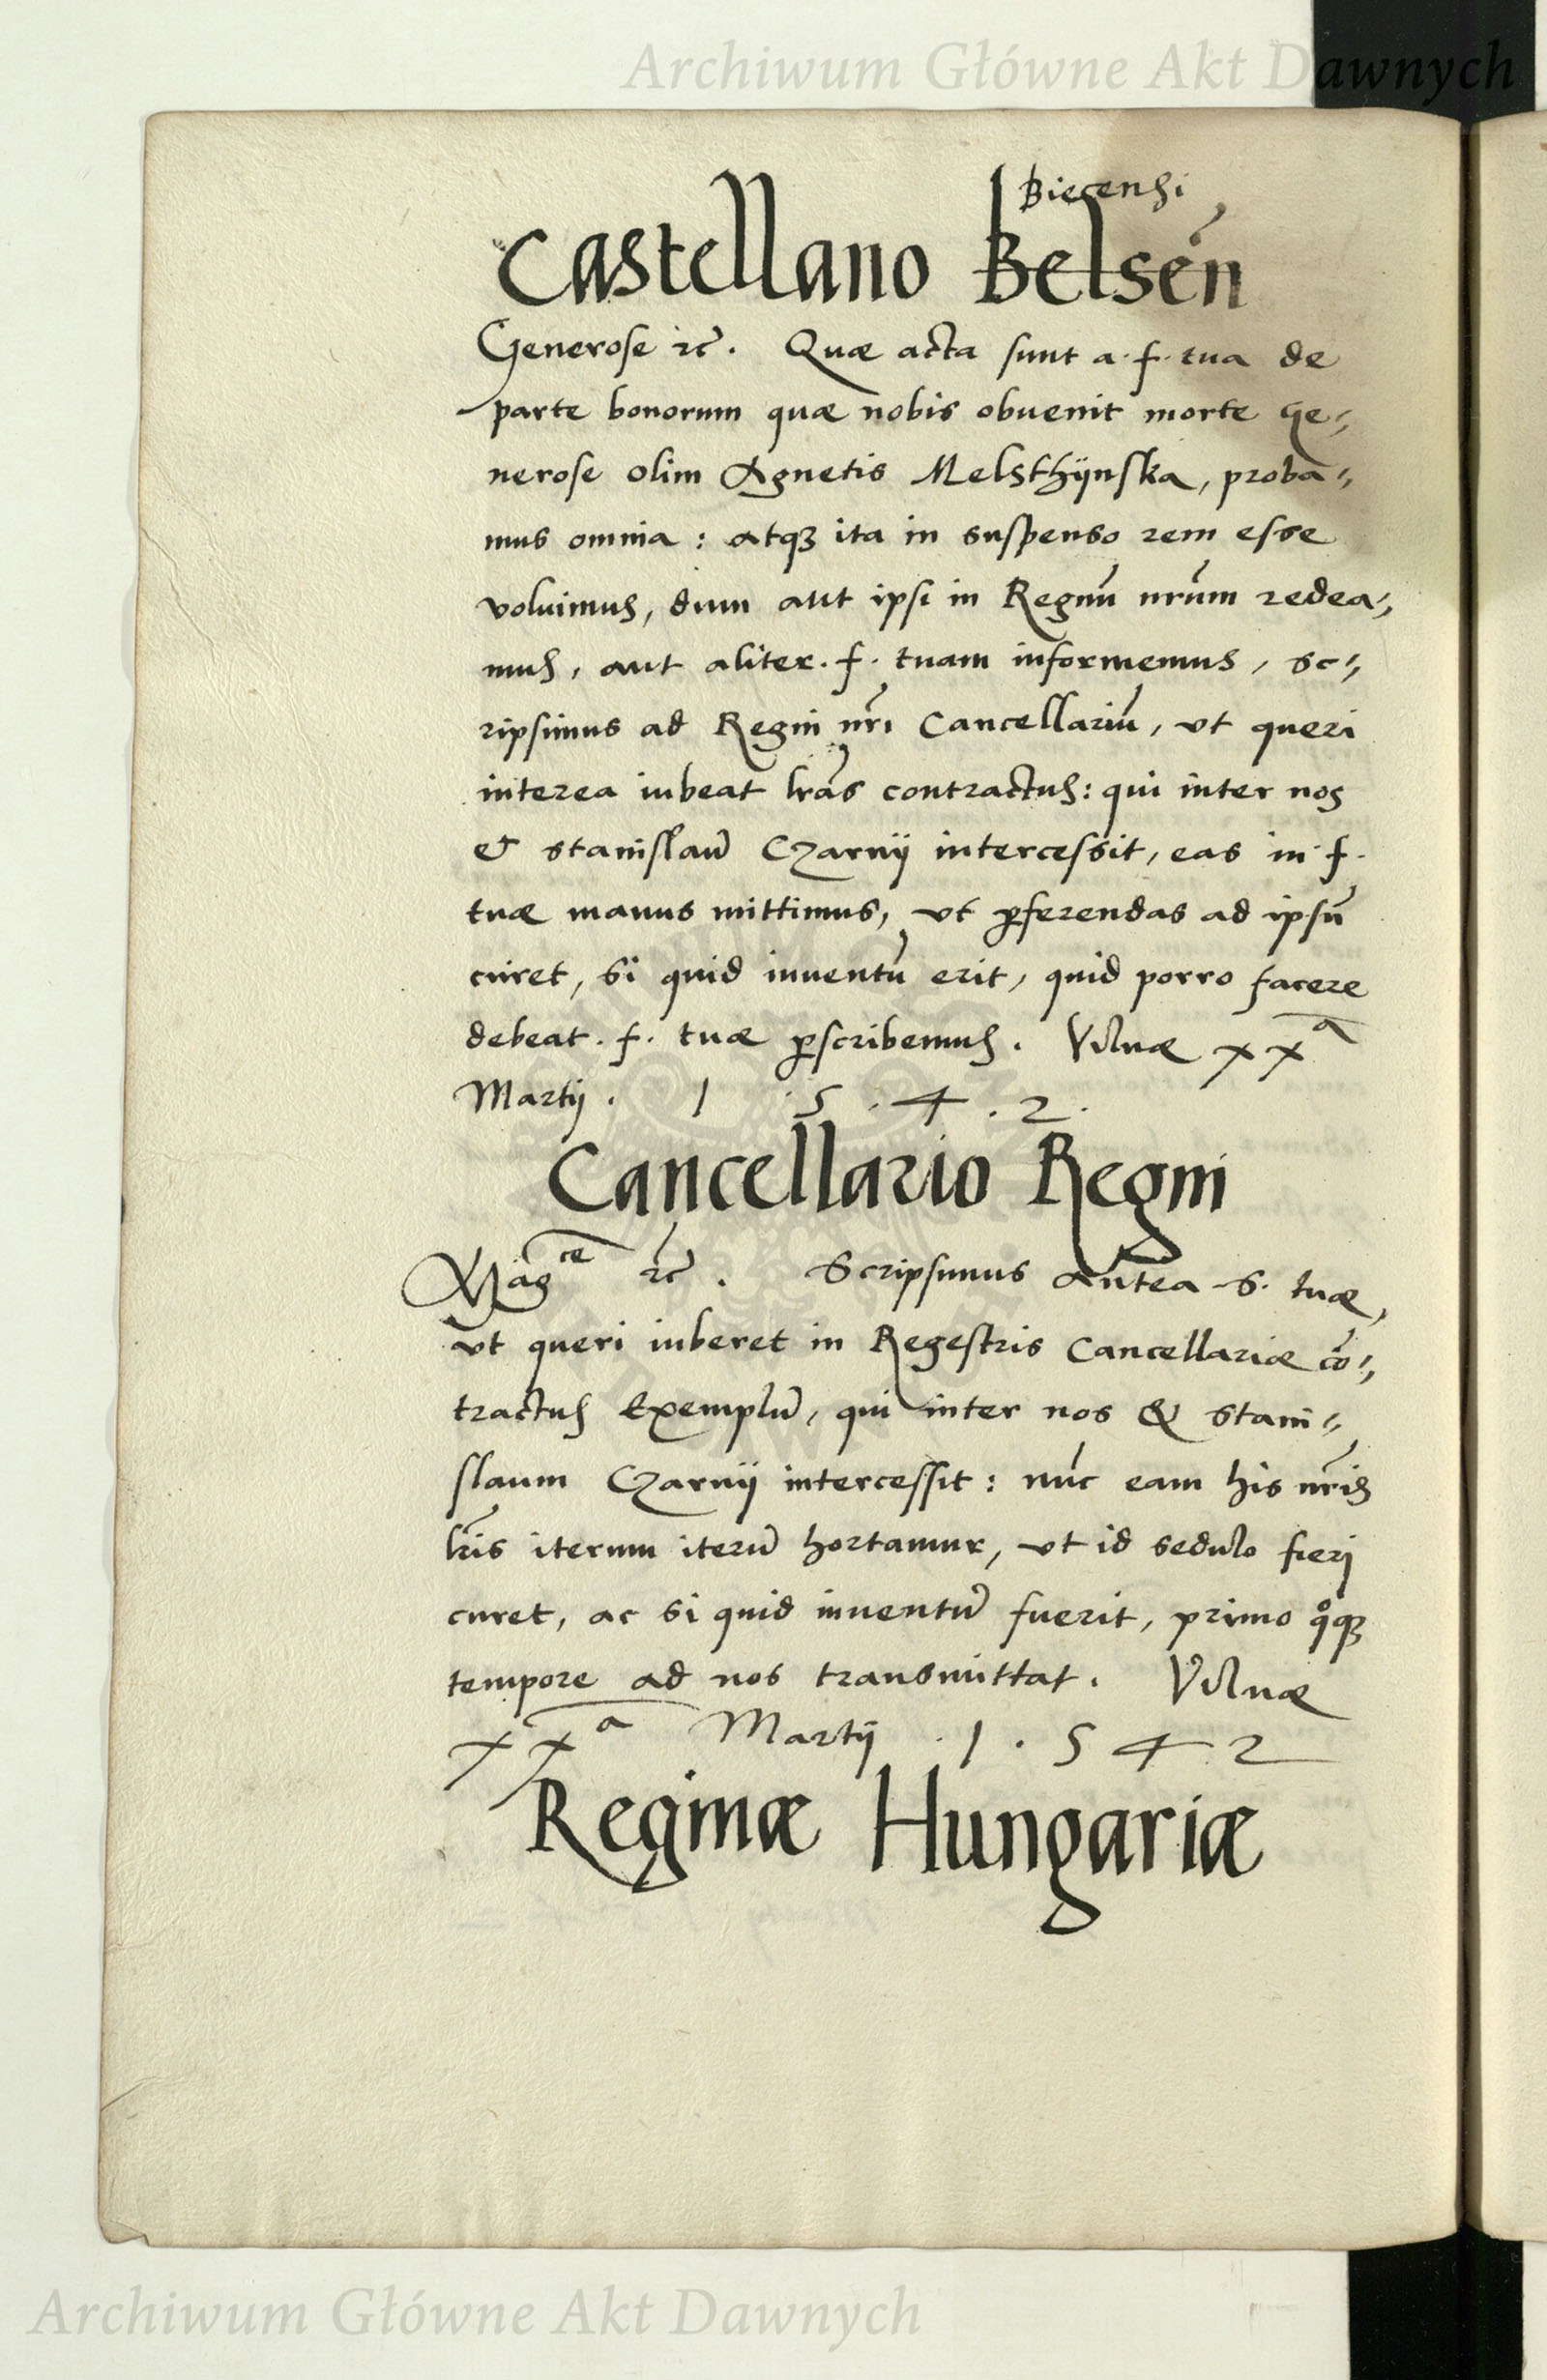 Archiwum Główne Akt Dawnych
Biecensi
Castellano Belsen̄
Generose ꝛc̄. Quæ acta sunt a. f. tua de
parte bonorum quæ nobis obuenit morte Ge⸗
nerose olim Agnetis Melsthÿnska, proba⸗
mus omnia : atqꝫ ita in suspenso rem esse
voluimus, dum aut ipsi in Regnū nr̄um redea⸗
mus, aut aliter. f. tuam informemus, sc⸗
ripsimus ad Regni nr̄i Cancellariū, vt queri
interea iubeat lr̄as contractus: qui inter nos
& stanislaū Czarnÿ intercessit, eas in f.
tuæ manus mittimus, vt ꝑferendas ad ipsū
curet, si quid inuentū erit, quid porro facere
debeat. f. tuæ ꝑscribemus. Vilnæ xxᵃ
Martÿ. 1 .5 .4 .2.
Cancellario Regni
Maḡᶜᵉ ꝛc̄. Scripsimus antea s. tuæ,
vt queri iuberet in Regestris Cancellariæ cō⸗
tractus Exemplū, qui inter nos & stani⸗
slaum Czarnÿ intercessit : nūc eam his nr̄is
lr̄is iterum iterū hortamur, vt id sedulo fieri
curet, ac si quid inuentū fuerit, primo qͦqꝫ
tempore ad nos transmittat. Vilnæ
xxᵃ Martÿ .1.542
Reginæ Hungariæ
Archiwum Główne Akt Dawnych